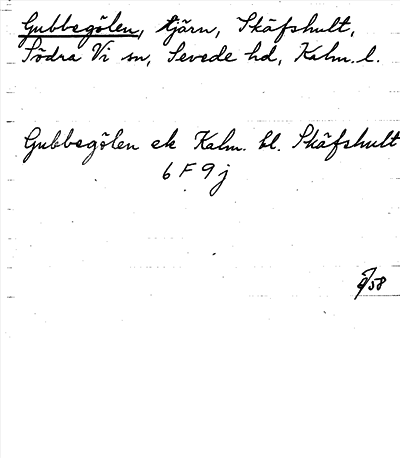 Gubbegölen, tjärn, Skäfshult,
Södra Vi sn, Sevede hd, Kalm. l.
Gubbegölen ek Kalm. bl. Skäfshult
6 F 9 j
/58